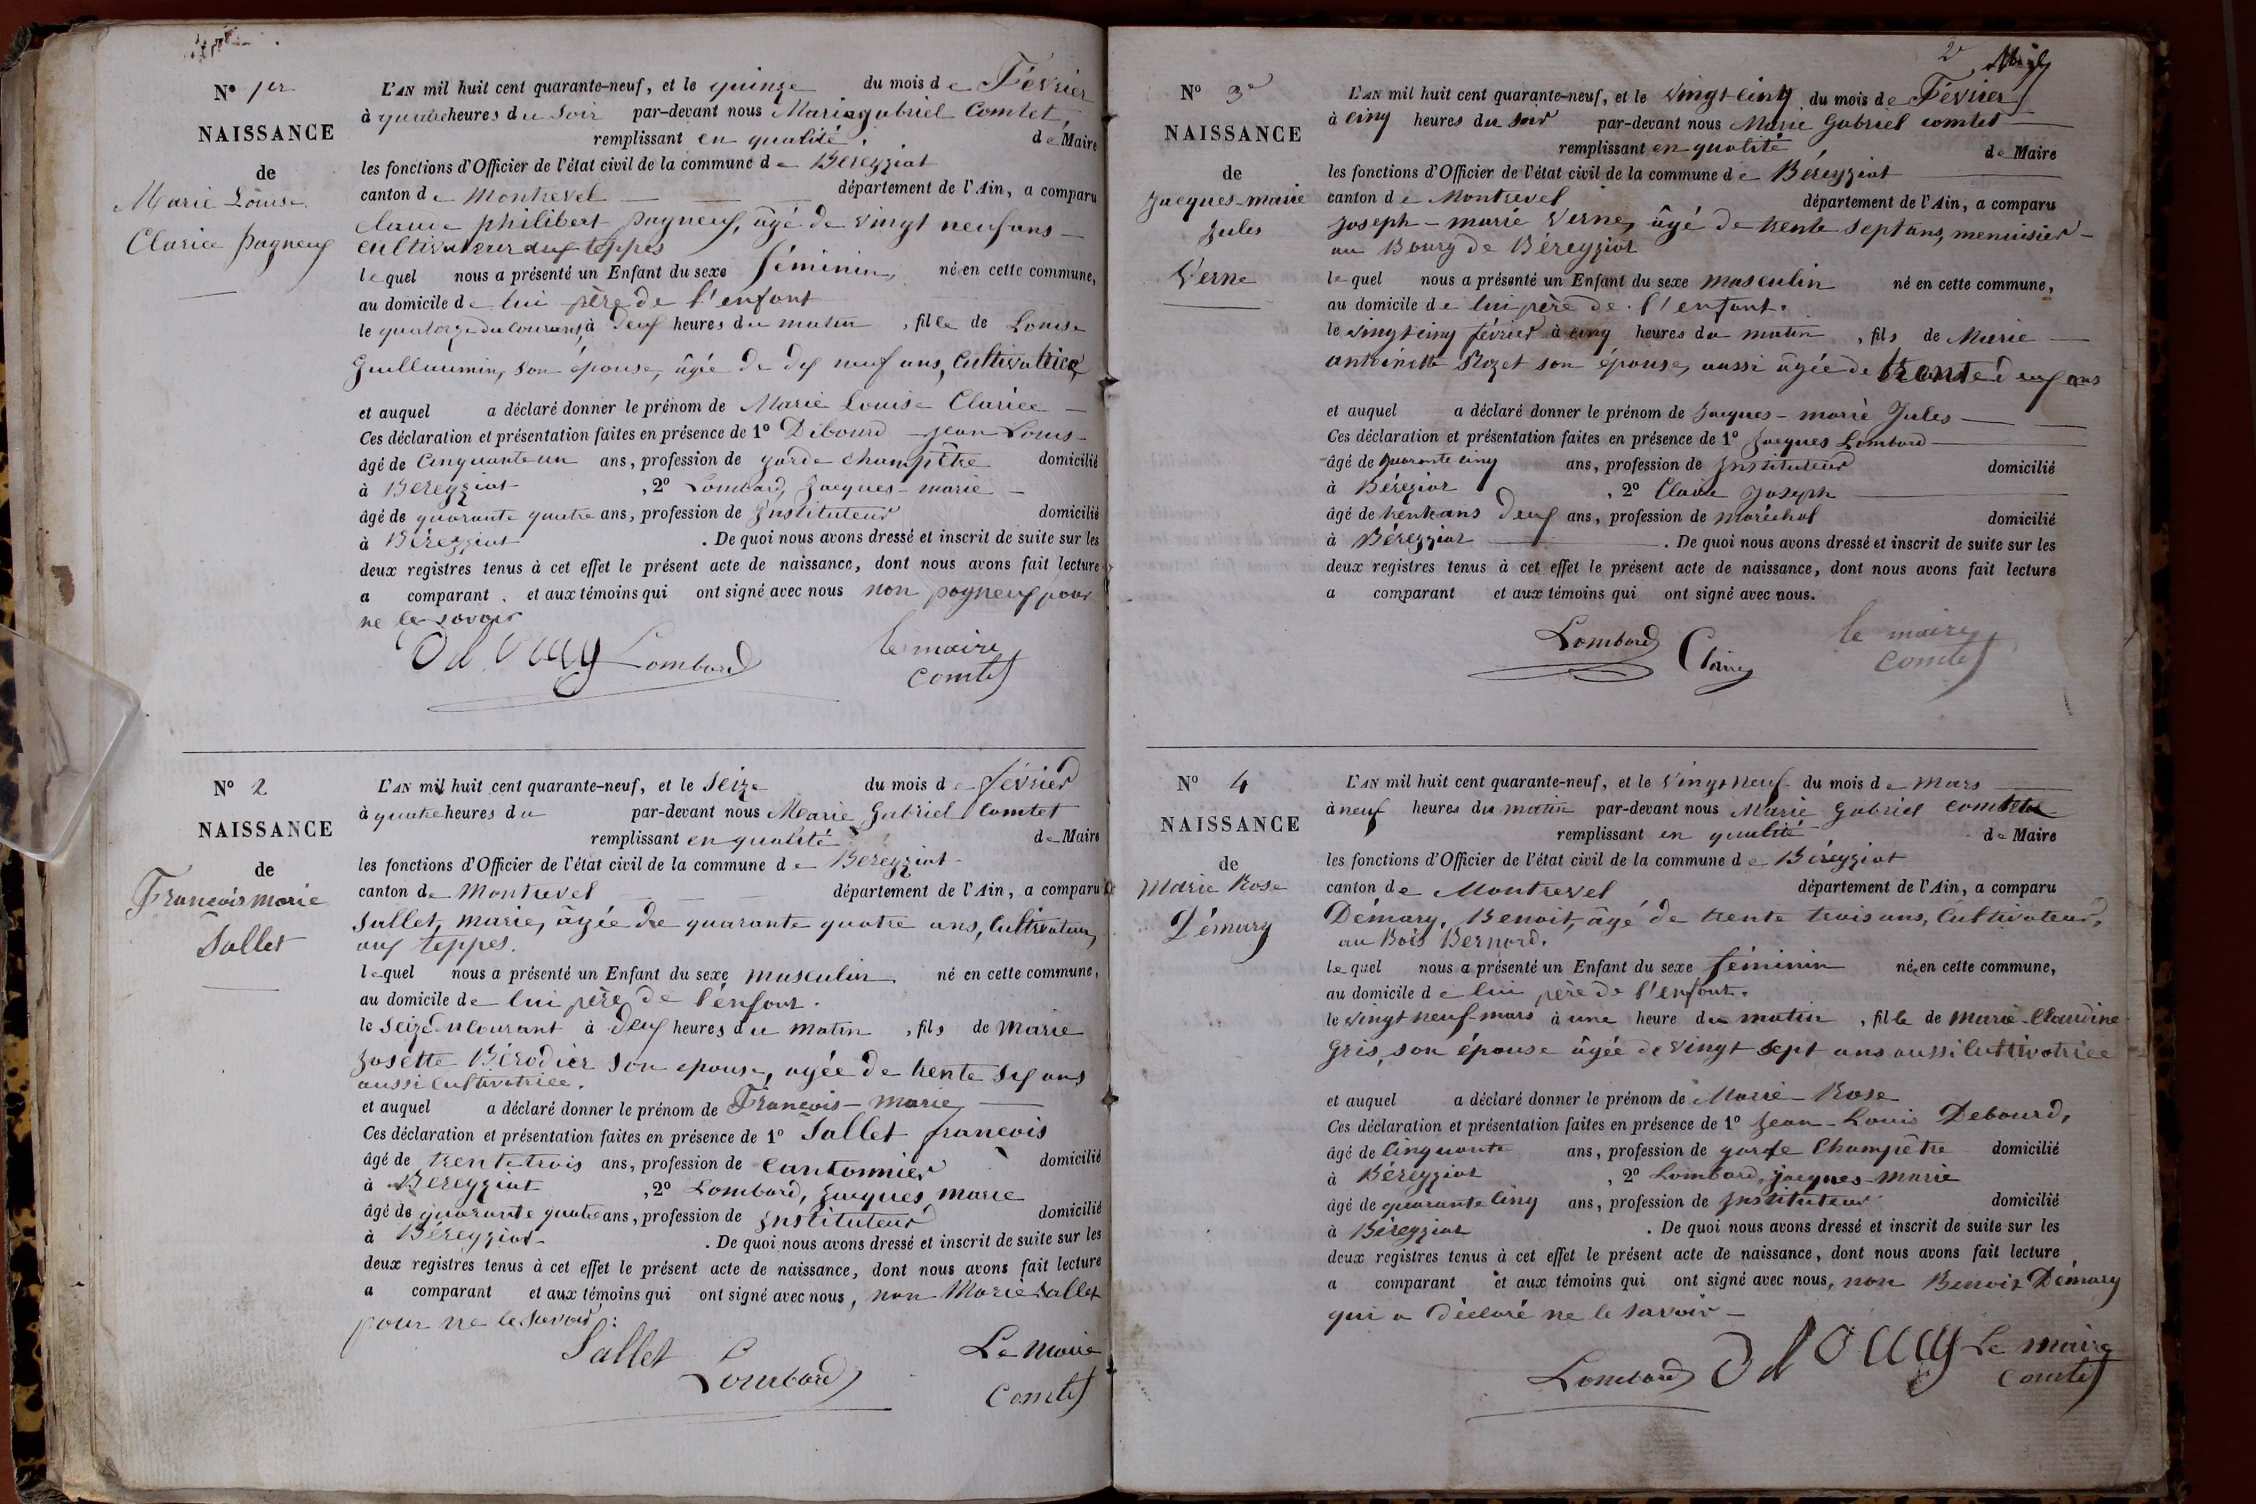 N° 1er
NAISSANCE
de
Marie Louise
Clarice pagneux
L'AN mil huit cent quarante-neuf, et le quinze du mois de Février
à quatre heures du soir par-devant nous Marie gabriel Comtet,
remplissant en qualité de Maire
les fonctions d'Officier de l'état civil de la commune de Béreyziat
canton de Montrevel département de l'Ain, a comparu
claude philibert pagneux, âgé de vingt neuf ans
cultivateur aux teppes
lequel nous a présenté un Enfant du sexe féminin, né en cette commune,
au domicile de lui père de l'enfant
le quatorze du courant, à deux heures du matin, fille de Louise
Guillaumin, son épouse, âgée de dix neuf ans, Cultivatrice
et auquel a déclaré donner le prénom de Marie Louise Clarice
Ces déclaration et présentation faites en présence de 1° Debourd Jean Louis
âgé de Cinquante un ans, profession de garde champêtre domicilié
à Béreyziat, 2° Lombard, Jacques-marie
âgé de quarante quatre ans, profession de Instituteur domicilié
à Béreyziat. De quoi nous avons dressé et inscrit de suite sur les
deux registres tenus à cet effet le présent acte de naissance, dont nous avons fait lecture
a comparant et aux témoins qui ont signé avec nous non pagneux pour
ne le savoir
Lombard le maire
Comtet
N° 2
NAISSANCE
de
François marie
Sallet
L'AN mil huit cent quarante-neuf, et le Seize du mois de février
à quatre heures du par-devant nous Marie Gabriel Comtet
remplissant en qualité de Maire
les fonctions d'Officier de l'état civil de la commune de Béreyziat
canton de Montrevel département de l'Ain, a comparu
Sallet, marie, âgée de quarante quatre ans, Cultivateur,
aux teppes.
lequel nous a présenté un Enfant du sexe masculin né en cette commune,
au domicile de lui père de l'enfant.
le Seize du courant à deux heures du matin, fils de Marie
Josette Bérodier son epouse, agée de trente six ans
aussi Cultivatrice.
et auquel a déclaré donner le prénom de François-marie
Ces déclaration et présentation faites en présence de 1° Sallet françois
âgé de trente trois ans, profession de Cantonnier domicilié
à Béreyziat, 2° Lombard, Jacques marie
âgé de quarante quatre ans, profession de Instituteur domicilié
à Béreyziat. De quoi nous avons dressé et inscrit de suite sur les
deux registres tenus à cet effet le présent acte de naissance, dont nous avons fait lecture
a comparant et aux témoins qui ont signé avec nous, non Marie Sallet
pour ne le savoir.
Sallet Lombard Le Maire
Comtet
2
N° 3e
NAISSANCE
de
Jacques-marie
Jules
Verne
L'AN mil huit cent quarante-neuf, et le vingt cinq du mois de Février
à cinq heures du soir par-devant nous Marie Gabriel comtet
remplissant en qualité de Maire
les fonctions d'Officier de l'état civil de la commune de Béreyziat
canton de Montrevel département de l'Ain, a comparu
Joseph-marie Verne, âgé de trente sept ans, menuisier
au Bourg de Béreyziat
lequel nous a présenté un Enfant du sexe masculin né en cette commune,
au domicile de lui père de l'enfant.
le vingt cinq février à cinq heures du matin, fils de Marie
antoinette Rozet son épouse, aussi âgée de trente deux ans
et auquel a déclaré donner le prénom de Jacques-marie Jules
Ces déclaration et présentation faites en présence de 1° Jacques Lombard
âgé de quarante cinq ans, profession de Instituteur domicilié
à Béreziat, 2° Claire Joseph
âgé de trente ans deux ans, profession de maréchal domicilié
à Béreyziat. De quoi nous avons dressé et inscrit de suite sur les
deux registres tenus à cet effet le présent acte de naissance, dont nous avons fait lecture
a comparant et aux témoins qui ont signé avec nous.
Lombard Claire le maire
Comtet
N° 4
NAISSANCE
de
Marie Rose
Démary
L'AN mil huit cent quarante-neuf, et le vingt neuf du mois de mars
à neuf heures du matin par-devant nous Marie Gabriel comtet
remplissant en qualité de Maire
les fonctions d'Officier de l'état civil de la commune de Béreyziat
canton de Montrevel département de l'Ain, a comparu
Démary, Benoit, âgé de trente trois ans, Cultivateur,
au Bois Bernard.
lequel nous a présenté un Enfant du sexe féminin né en cette commune,
au domicile de lui père de l'enfant.
le vingt neuf mars à une heure du matin, fille de marie-Claudine
Gris, son épouse âgée de vingt sept ans aussi Cultivatrice
et auquel a déclaré donner le prénom de Marie-Rose
Ces déclaration et présentation faites en présence de 1° Jean-Louis Debourd,
âgé de Cinquante ans, profession de garde Champêtre domicilié
à Béreyziat, 2° Lombard, jacques-marie
âgé de quarante cinq ans, profession de Instituteur domicilié
à Béreyziat. De quoi nous avons dressé et inscrit de suite sur les
deux registres tenus à cet effet le présent acte de naissance, dont nous avons fait lecture
a comparant et aux témoins qui ont signé avec nous, non Benoit Démary
qui a déclaré ne le savoir
Lombard Le maire
Comtet